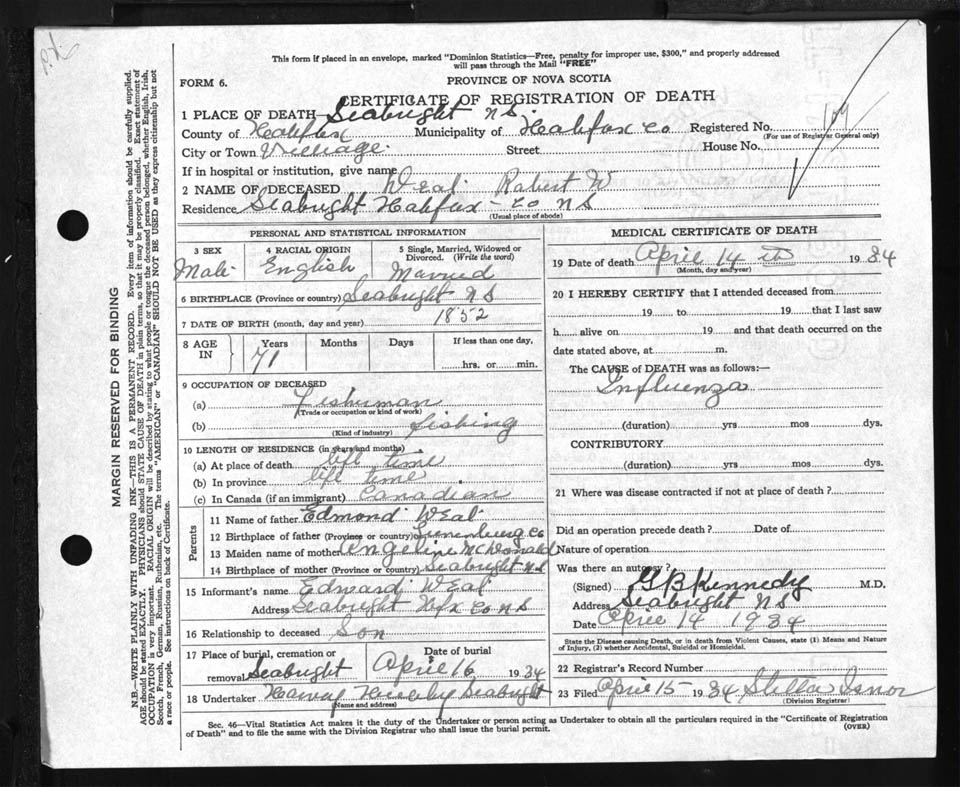 This form if placed in an envelope, marked "Dominion Statistics—Free, penalty for improper use, $300," and properly addressed
will pass through the Mail "FREE"
FORM 6.
PROVINCE OF NOVA SCOTIA
CERTIFICATE OF REGISTRATION OF DEATH
1 PLACE OF DEATH Seabright NS.
County of Halifax Municipality of Halifax Co Registered No.
(For use of Registrar General only)
City or Town Village Street House No.
If in hospital or institution, give name
2 NAME OF DECEASED Weal Robert W
Residence Seabright Halifax - Co NS
(Usual place of abode)
PERSONAL AND STATISTICAL INFORMATION
3 SEX 4 RACIAL ORIGIN 5 Single, Married, Widowed or
Divorced. (Write the word)
Male English Married
6 BIRTHPLACE (Province or country) Seabright NS
7 DATE OF BIRTH (month, day and year) 1852
8 AGE IN Years Months Days If less than one day,
71 hrs. or min.
9 OCCUPATION OF DECEASED
(a) Fisherman
(Trade or occupation or kind of work)
(b) fishing
(Kind of industry)
10 LENGTH OF RESIDENCE (in years and months)
(a) At place of death life time
(b) In province life time
(c) In Canada (if an immigrant) Canadian
Parents
11 Name of father Edmond Weal
12 Birthplace of father (Province or country) Lunenburg Co
13 Maiden name of mother Angeline McDonald
14 Birthplace of mother (Province or country) Seabright NS
15 Informant's name Edward Weal
Address Seabright Hfx Co NS
16 Relationship to deceased Son
17 Place of burial, cremation or Date of burial
removal Seabright April 16 1934
18 Undertaker Harvey Hubley Seabright
(Name and address)
MEDICAL CERTIFICATE OF DEATH
19 Date of death April 14 th 1934
(Month, day and year)
20 I HEREBY CERTIFY that I attended deceased from
19 to 19 that I last saw
h alive on 19 and that death occurred on the
date stated above, at m.
The CAUSE of DEATH was as follows:—
Influenza
(duration) yrs mos dys.
CONTRIBUTORY
(duration) yrs mos dys.
21 Where was disease contracted if not at place of death?
Did an operation precede death? Date of
Nature of operation
Was there an autopsy?
(Signed) G B Kennedy M.D.
Address Seabright NS
Date April 14 1934
State the Disease causing Death, or in death from Violent Causes, state (1) Means and Nature
of Injury, (2) whether Accidental, Suicidal or Homicidal.
22 Registrar's Record Number
23 Filed April 15 1934 Stella Isnor
(Division Registrar)
Sec. 46—Vital Statistics Act makes it the duty of the Undertaker or person acting as Undertaker to obtain all the particulars required in the "Certificate of Registration
of Death" and to file the same with the Division Registrar who shall issue the burial permit.
(OVER)
MARGIN RESERVED FOR BINDING
N.B.—WRITE PLAINLY WITH UNFADING INK—THIS IS A PERMANENT RECORD. Every item of information should be carefully supplied.
AGE should be stated EXACTLY. PHYSICIANS should STATE CAUSE OF DEATH in plain terms, so that it may be properly classified. Exact statement of
OCCUPATION is very important. RACIAL ORIGIN will be described by stating to what people or tongue the deceased person belonged, whether English, Irish,
Scotch, French, German, Russian, Ruthenian, etc. The terms "AMERICAN" or "CANADIAN" SHOULD NOT BE USED as they express citizenship but not
a race or people. See instructions on back of Certificate.